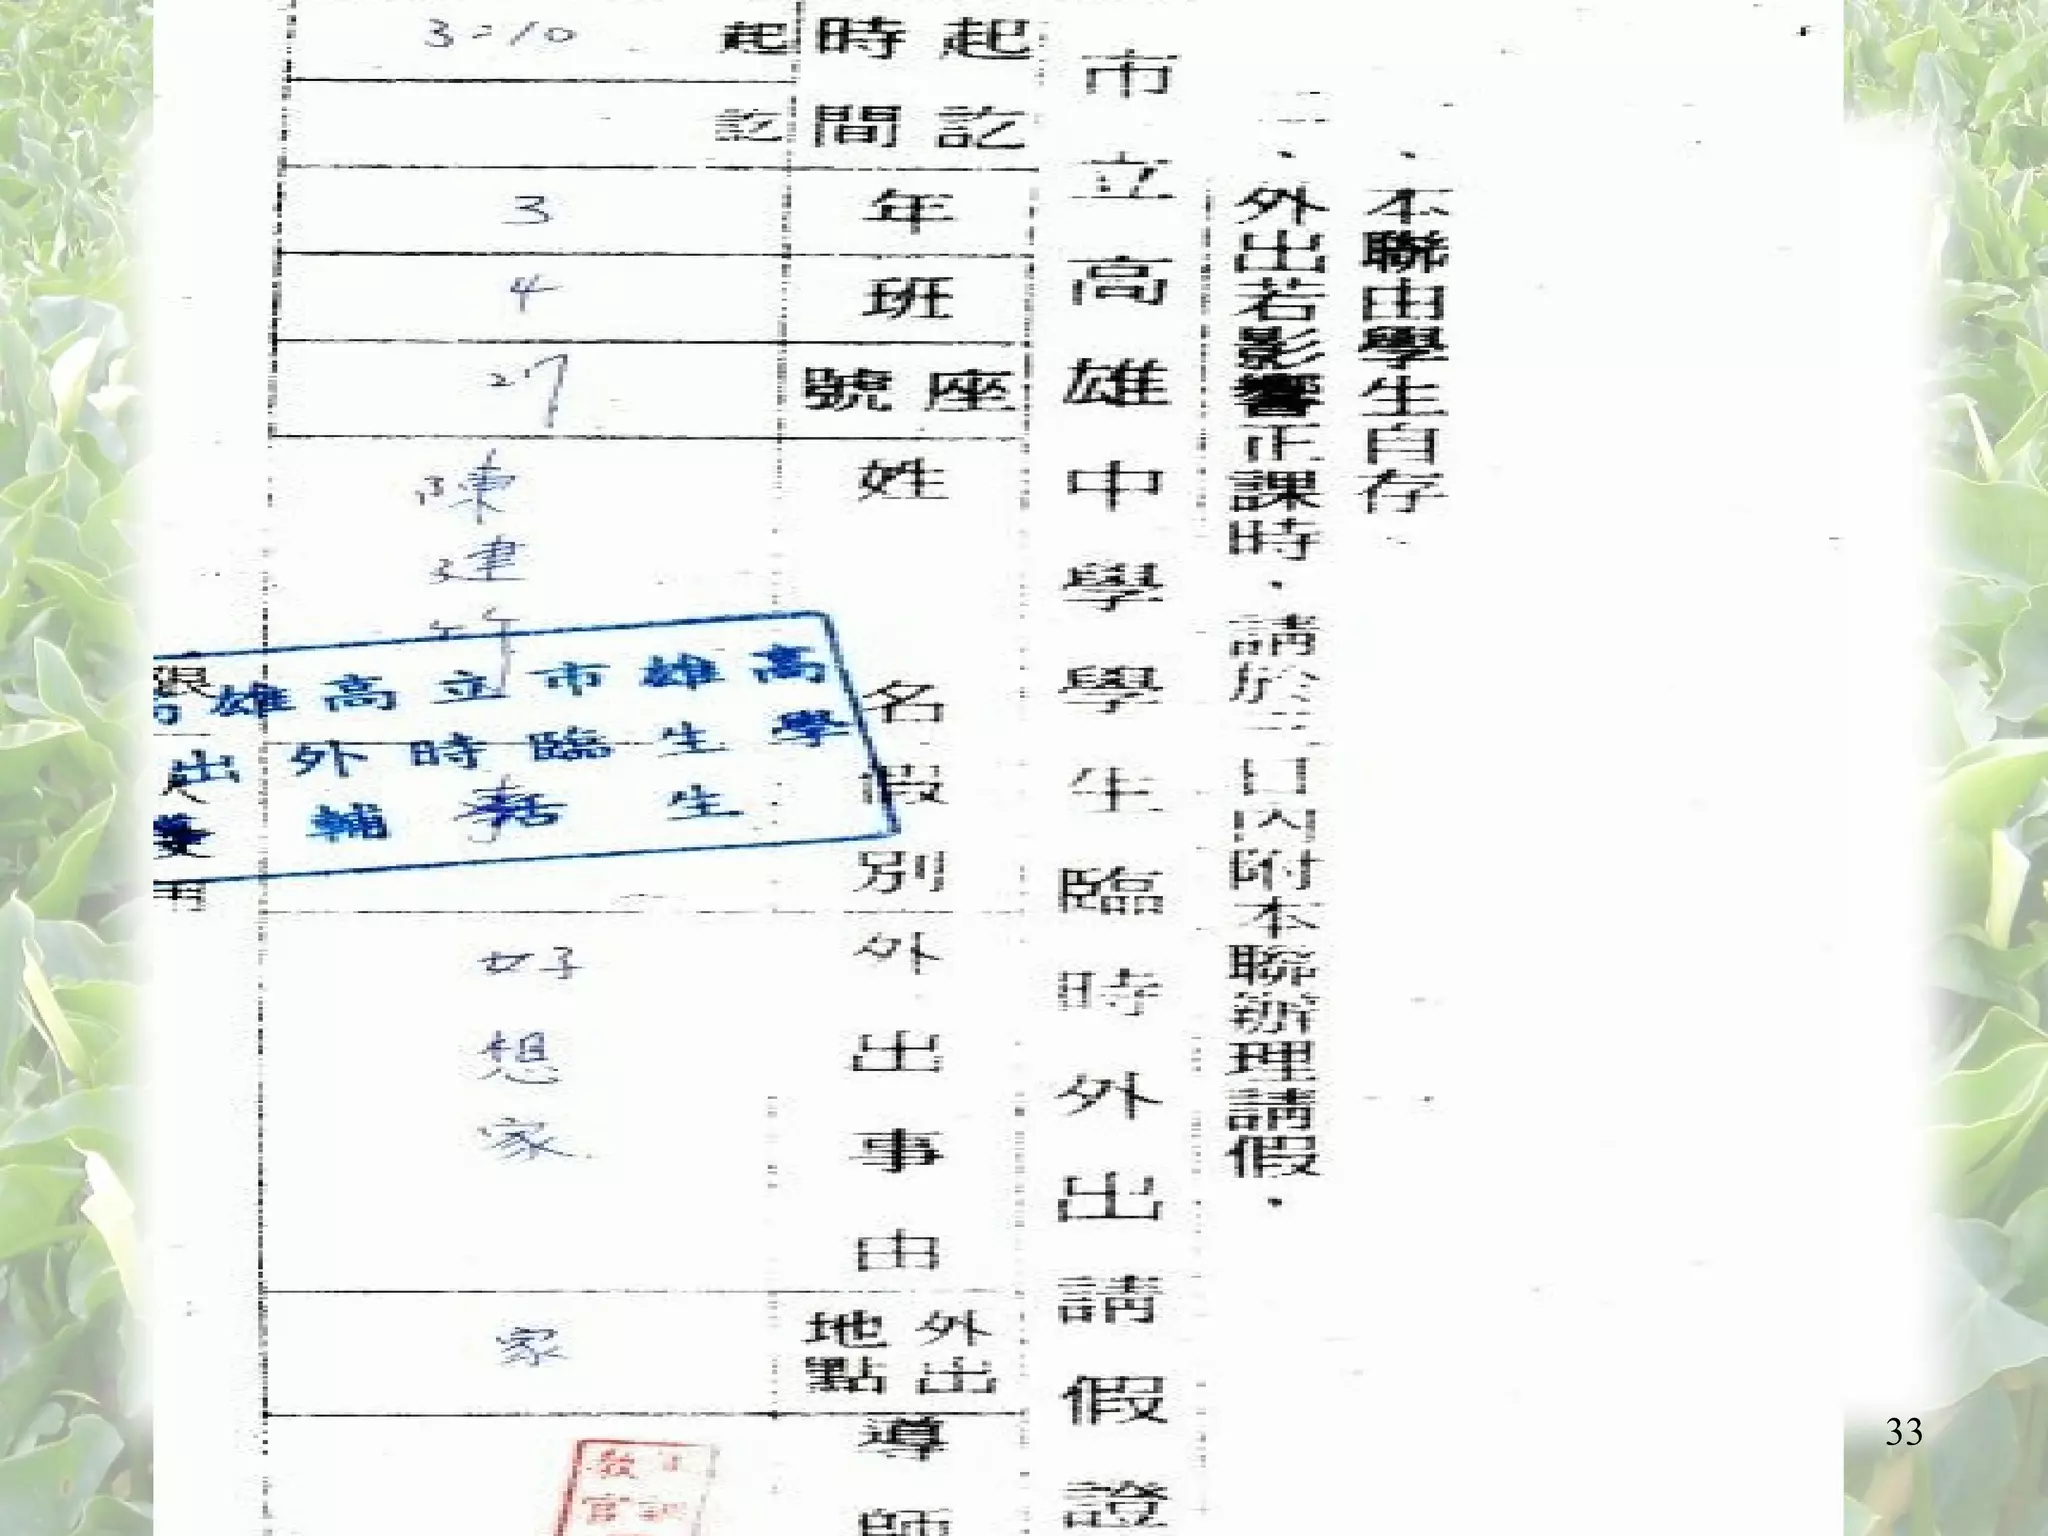 、不聯由學生自存
、外出若影響正課時，請於三日內附本聯辦理請假．
市立高雄中學學生臨時外出請假證
起訖時間
起
訖
3-10
年
3
班
4
座號
27
姓名
陳建竹
假別
事
外出事由
好想家
外出地點
家
導師
高雄市立高雄
學生臨時外出
生活輔
教
官
33